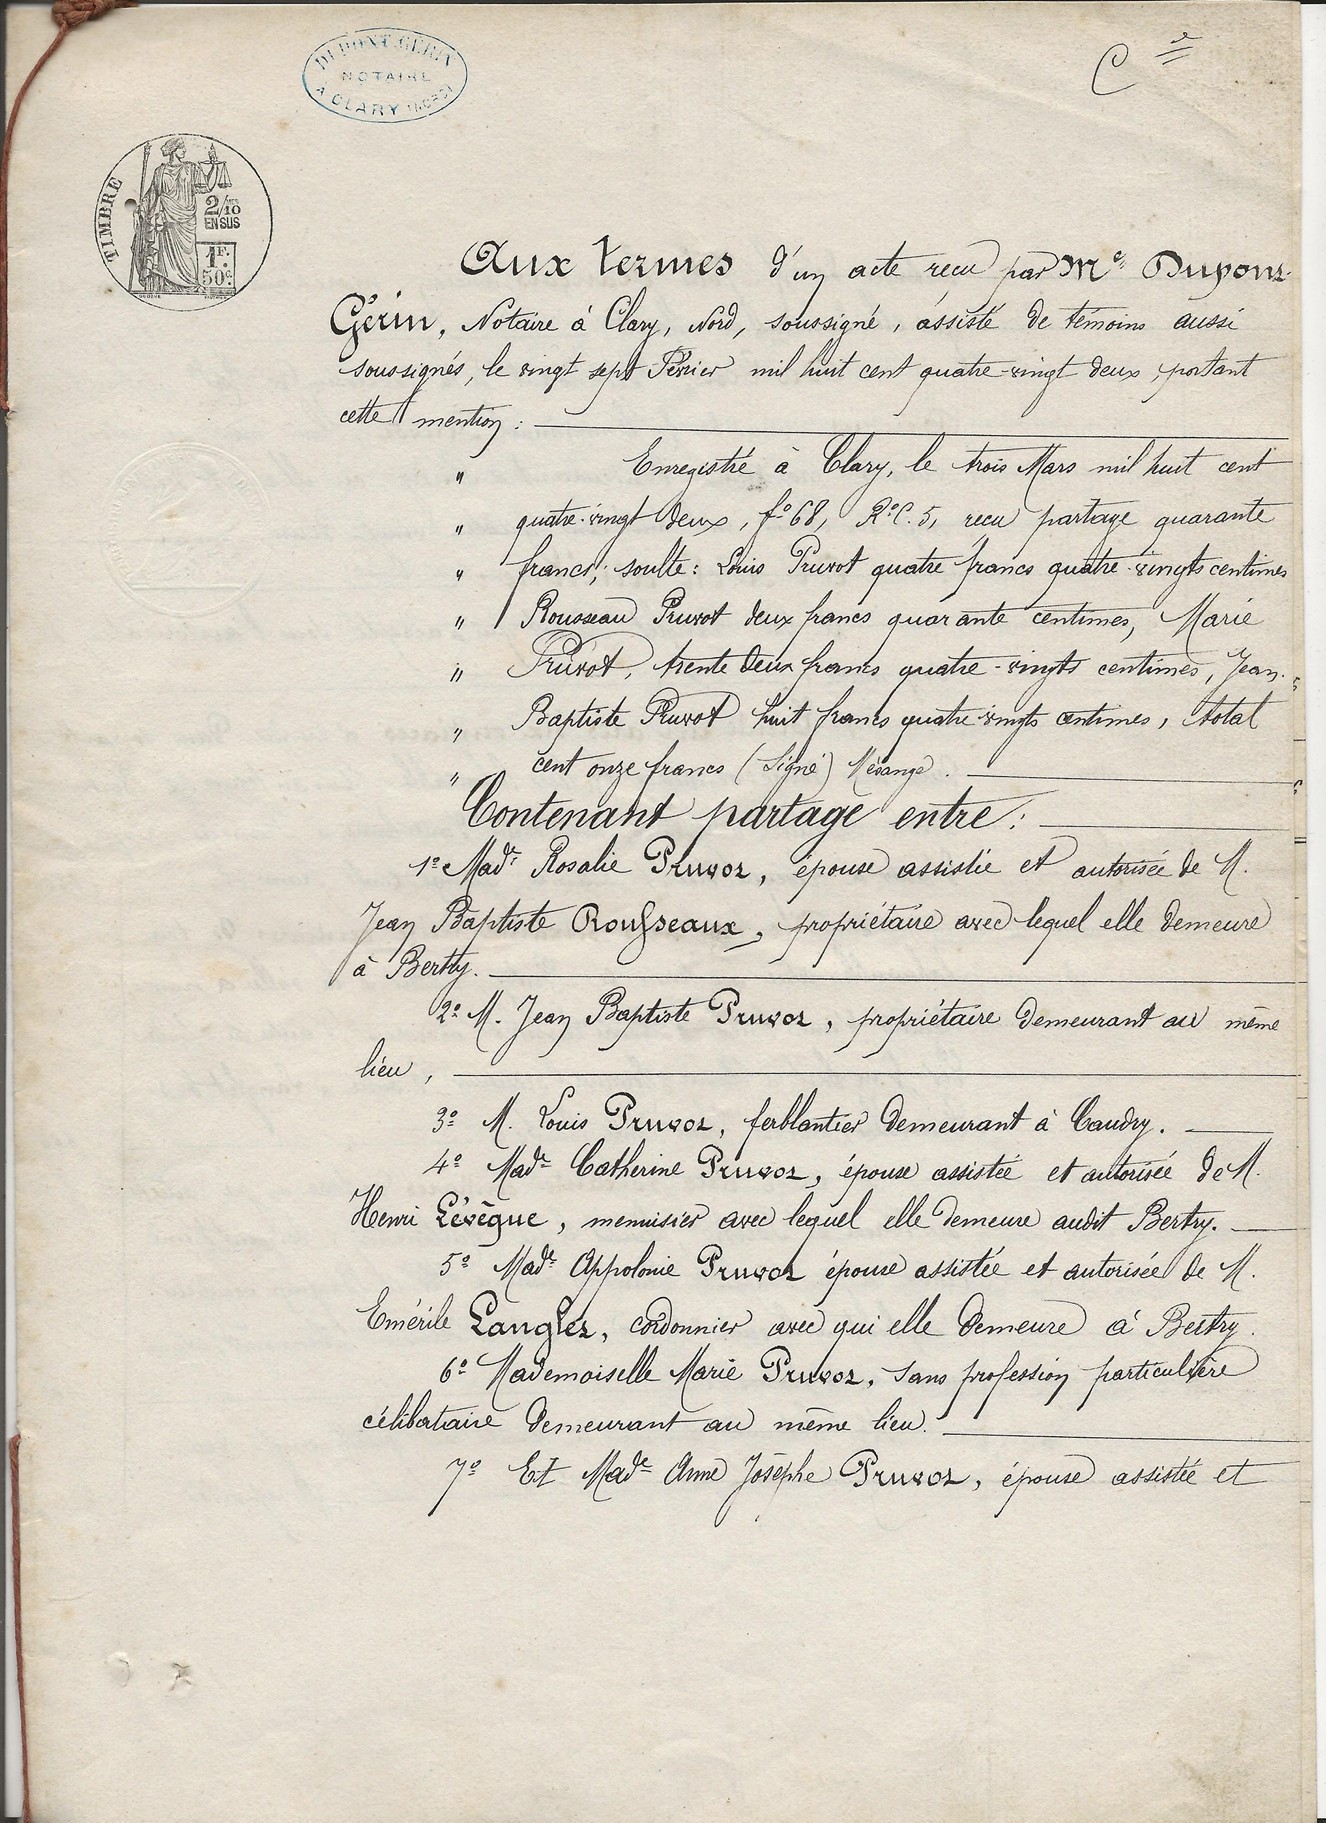 DUPONT-GÉRIN
NOTAIRE
A CLARY (NORD)
C el
TIMBRE
2/10
EN SUS
1F.
50c.
Aux termes d'un acte reçu par Me Dupont-
Gérin, Notaire à Clary, Nord, soussigné, assisté de témoins aussi
soussignés, le vingt sept Février mil huit cent quatre-vingt deux, portant
cette mention :
" Enregistré à Clary, le trois Mars mil huit cent
" quatre-vingt deux, fo 68, Ro C. 5, reçu partage quarante
" francs; soulte: Louis Pruvot quatre francs quatre-vingts centimes
" Rousseau Pruvot deux francs quarante centimes, Marie
" Pruvot, trente deux francs quatre-vingts centimes, Jean-
" Baptiste Pruvot huit francs quatre vingts centimes, total
" cent onze francs (Signé) Mésange.
Contenant partage entre :
1o Made Rosalie Pruvot, épouse assistée et autorisée de M.
Jean Baptiste Rousseaux, propriétaire avec lequel elle demeure
à Bertry.
2o M. Jean Baptiste Pruvot, propriétaire demeurant au même
lieu,
3o M. Louis Pruvot, ferblantier demeurant à Caudry.
4o Made Catherine Pruvot, épouse assistée et autorisée de M.
Henri Lévêque, menuisier avec lequel elle demeure audit Bertry.
5o Made Appolonie Pruvot épouse assistée et autorisée de M.
Emérile Langlet, cordonnier avec qui elle demeure à Bertry.
6o Mademoiselle Marie Pruvot, sans profession particulière
célibataire demeurant au même lieu.
7o Et Made Anne Josèphe Pruvot, épouse assistée et